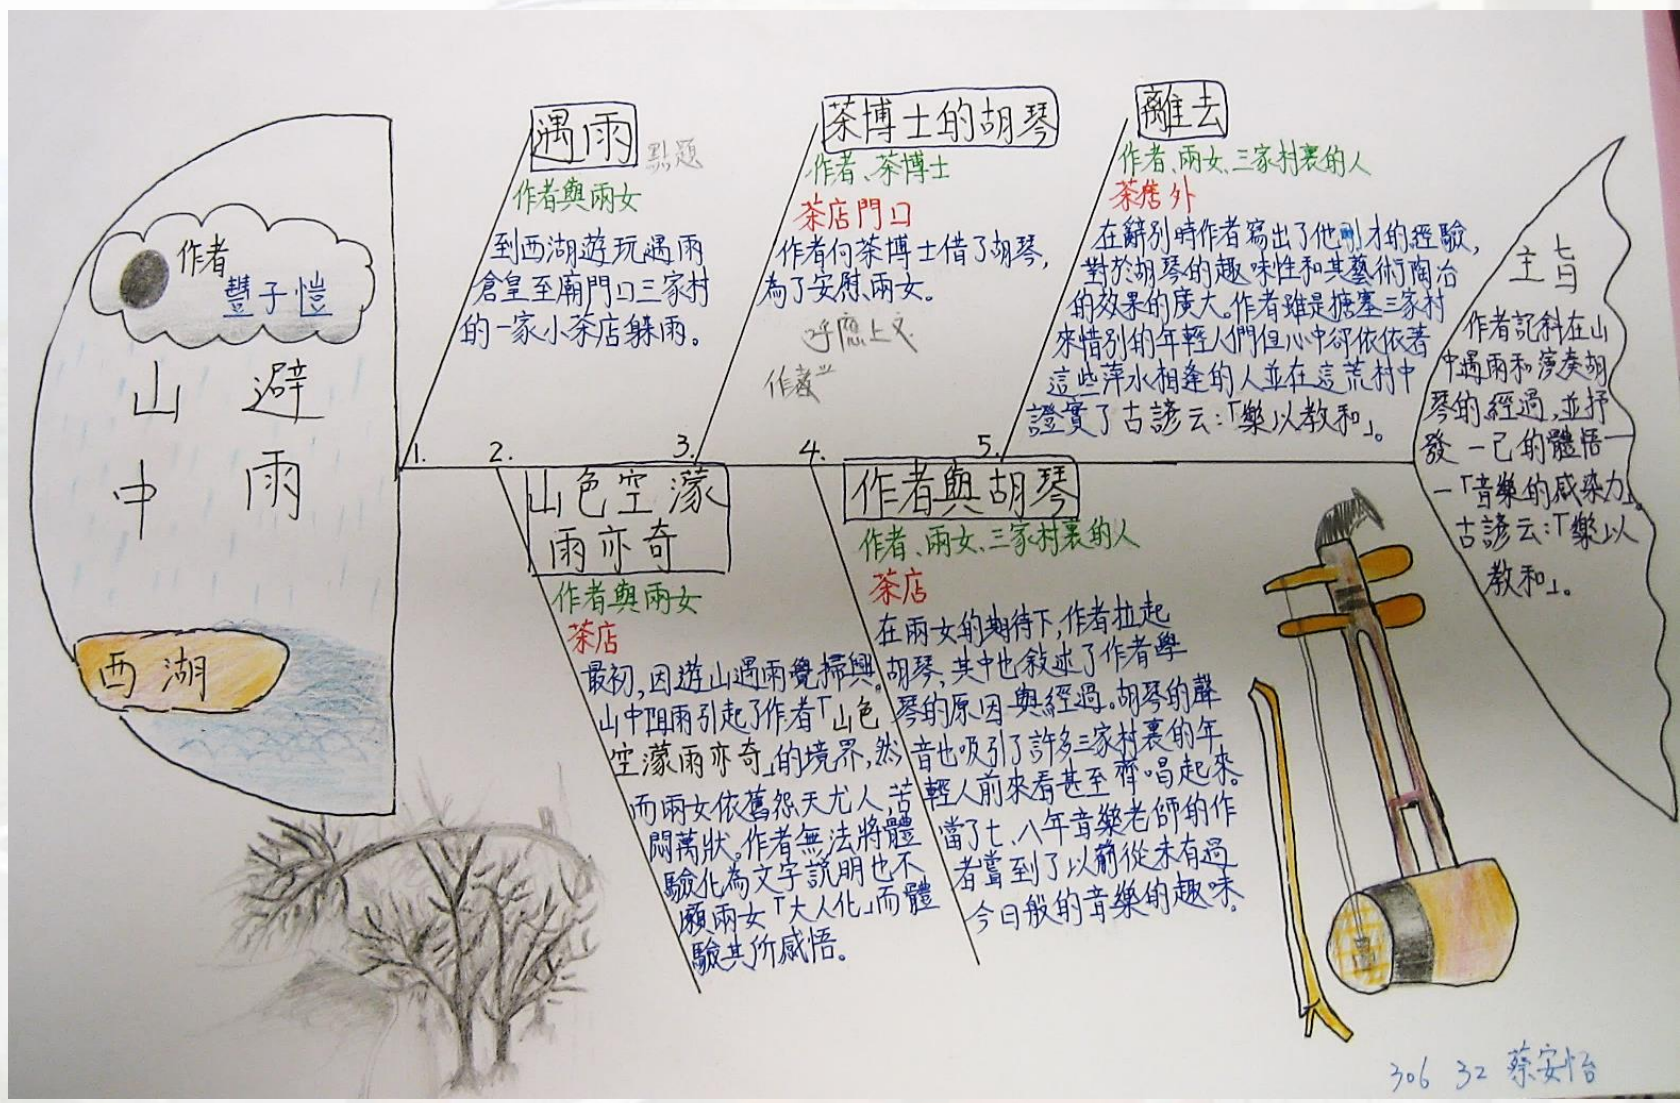 作者
豐子愷
山中
避雨
西湖
1.
遇雨
點題
作者與兩女
到西湖遊玩遇雨
倉皇至廟門口三家村
的一家小茶店躲雨。
2.
山色空濛
雨亦奇
作者與兩女
茶店
最初,因遊山遇雨覺掃興。
山中阻雨引起了作者「山色
空濛雨亦奇」的境界,然
而兩女依舊怨天尤人,苦
悶萬狀。作者無法將體
驗化為文字說明也不
願兩女「大人化」而體
驗其所感悟。
3.
茶博士的胡琴
作者、茶博士
茶店門口
作者向茶博士借了胡琴,
為了安慰兩女。
呼應上文
作者
4.
作者與胡琴
作者、兩女、三家村裏的人
茶店
在兩女的期待下,作者拉起
胡琴,其中也敍述了作者學
琴的原因與經過。胡琴的聲
音也吸引了許多三家村裏的年
輕人前來看甚至齊唱起來。
當了七、八年音樂老師的作
者嘗到了以前從未有過
今日般的音樂的趣味。
5.
離去
作者、兩女、三家村裏的人
茶店外
在辭別時作者寫出了他剛才的經驗,
對於胡琴的趣味性和其藝術陶冶
的效果的廣大。作者雖是搪塞三家村
來惜別的年輕人們但心中卻依依著
這些萍水相逢的人並在這荒村中
證實了古諺云:「樂以教和」。
主旨
作者記敘在山
中遇雨和演奏胡
琴的經過,並抒
發一己的體悟—
—「音樂的感染力」。
古諺云:「樂以
教和」。
306 32 蔡安怡